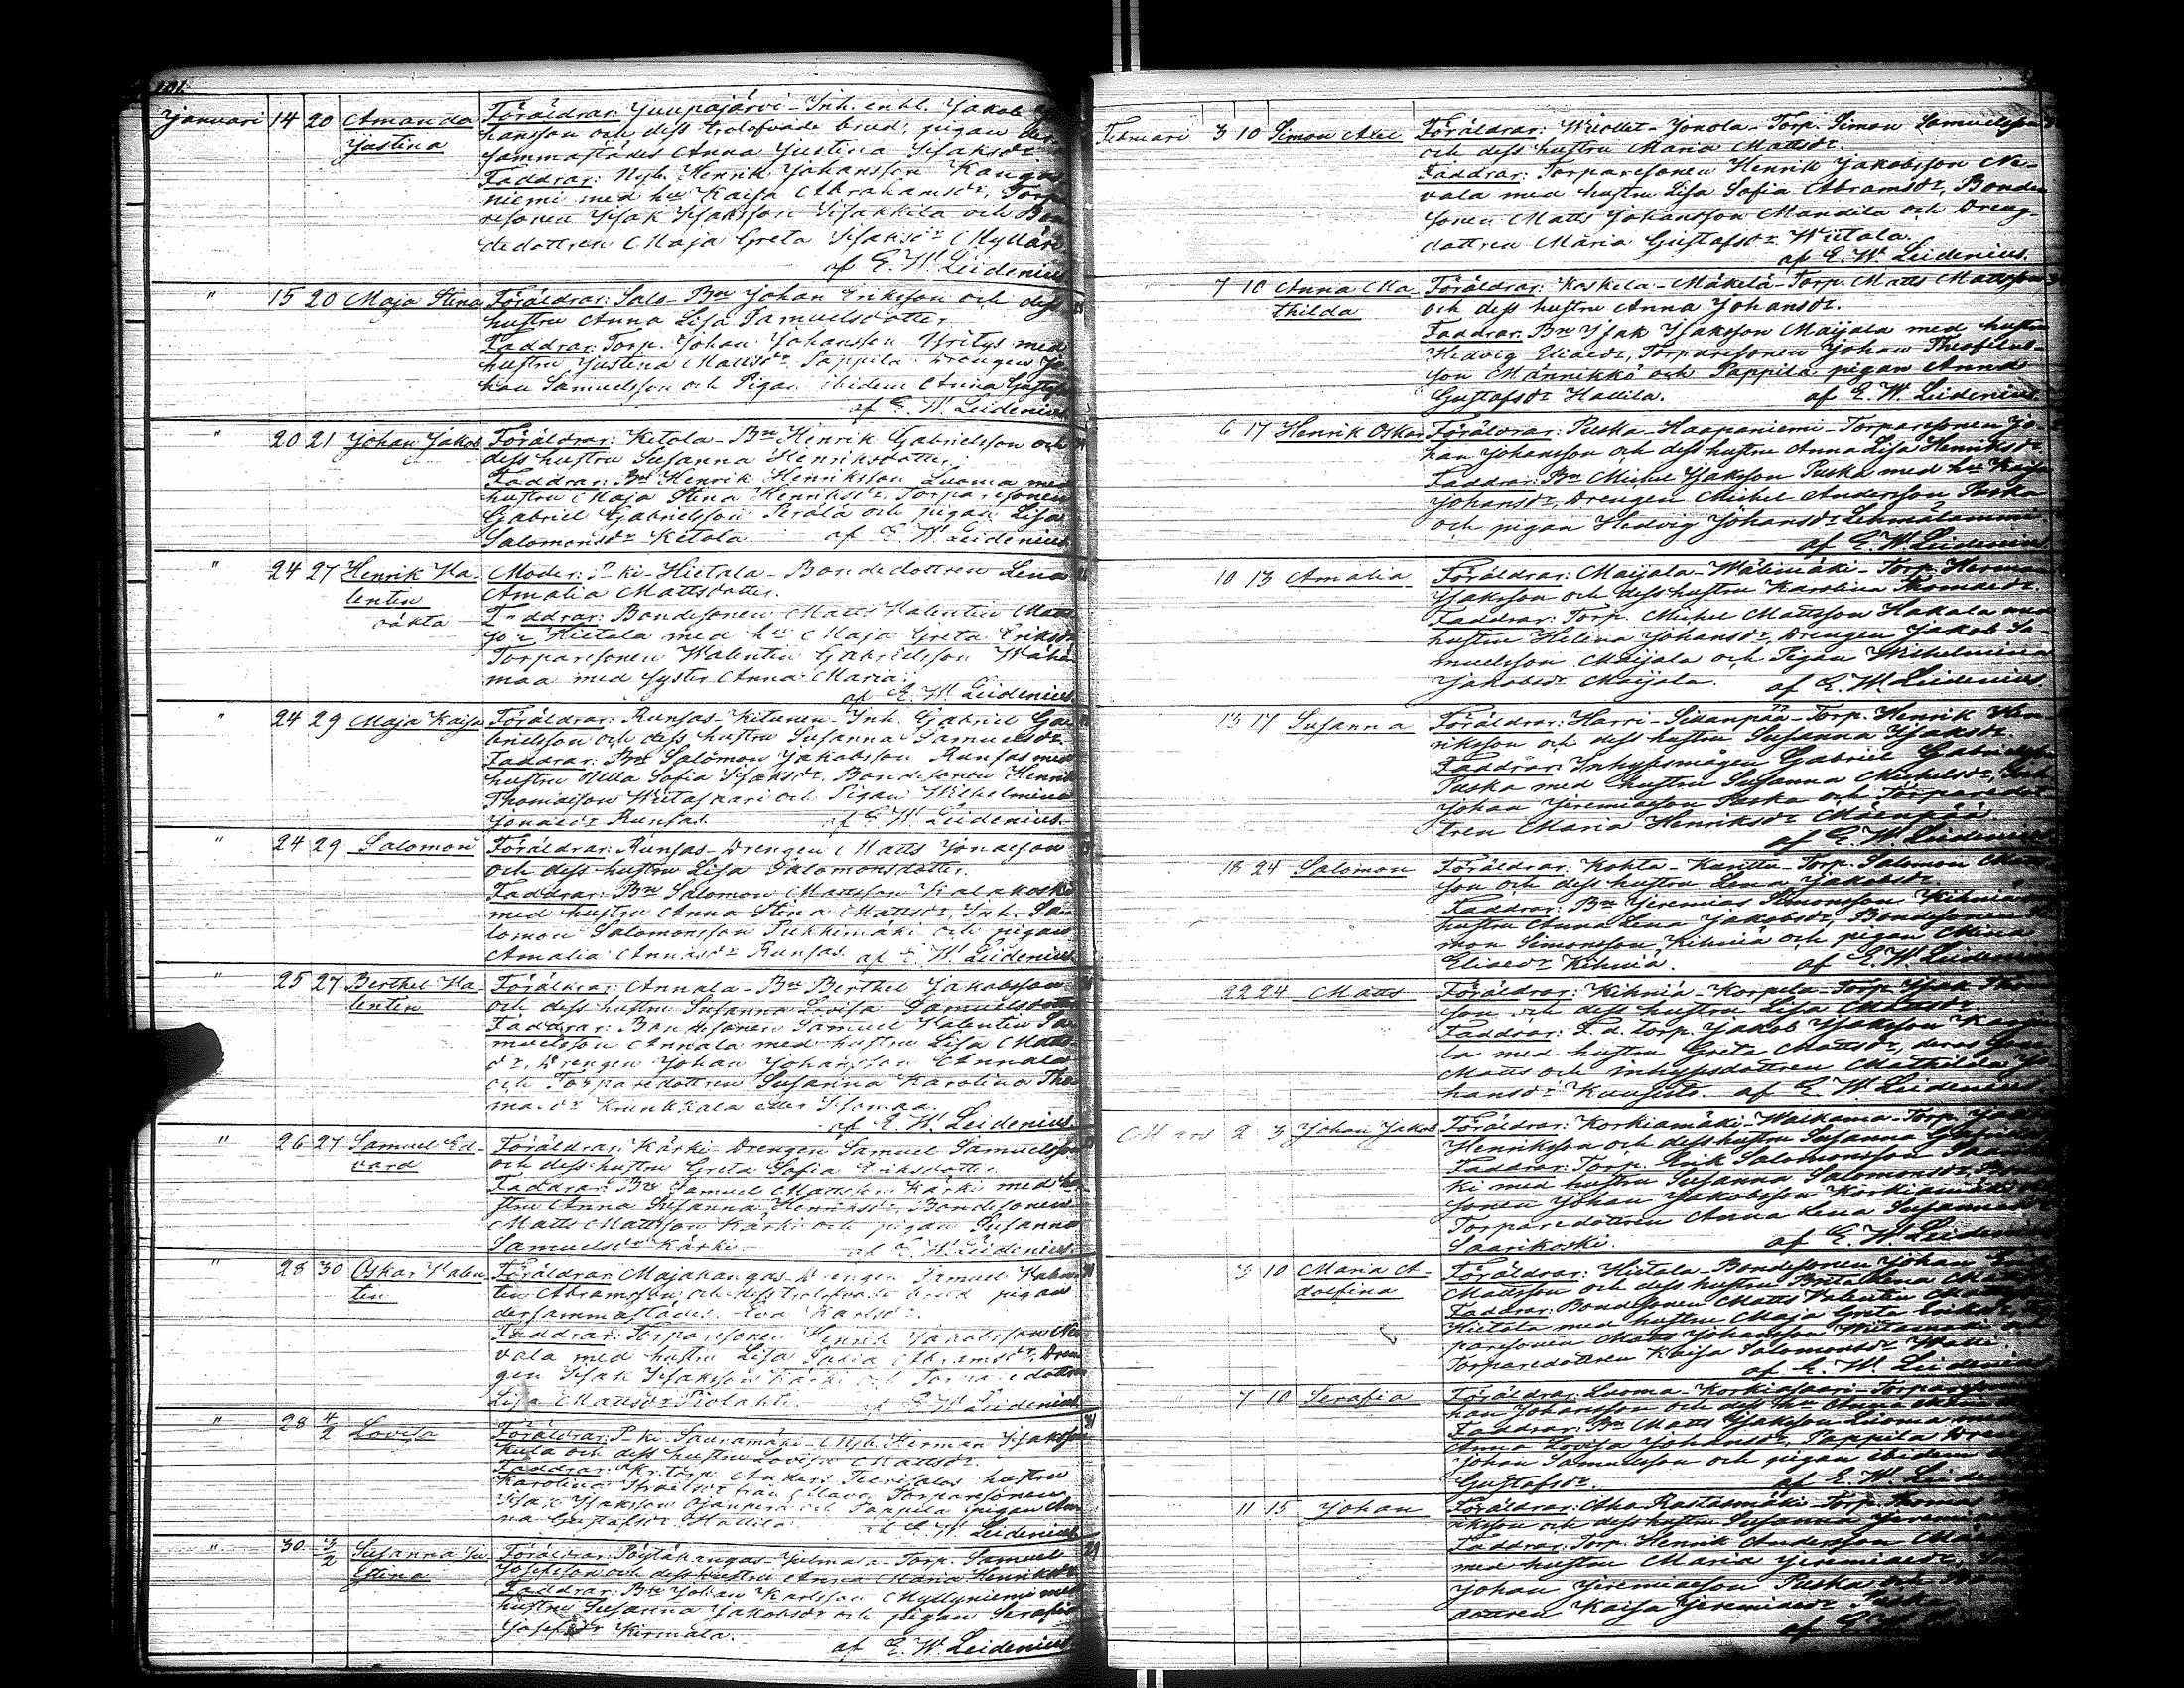 101.
Januari 14 20 Amanda Föräldrar: Juupajärvi-Inh. enkl. Jakob
Justina hansson och dess trolofvade brud, pigan der-
sammastädes Anna Justina Isaksdr
Faddrar: Nyb. Henrik Johansson Kangas
niemi med hu Kaisa Abrahamsdr, Torpa
resonen Isak Isaksson Sissakkila och Bon
dedottren Maja Greta Isaksdr Mylläri
af E. W. Leidenius
" 15 20 Maja Stina Föräldrar: Salo-Bn Johan Eriksson och dess
hustru Anna Lisa Samuelsdotter.
Faddrar: Torp. Johan Johansson Yritys med
hustru Justina Mattsdr, Pappila Drengen Jo
han Samuelsson och Pigan ibidem Anna Gustafs
af E. W. Leidenius
" 20 21 Johan Jakob Föräldrar: Ketola-Bn Henrik Gabrielsson och
dess hustru Susanna Henriksdotter.
Faddrar: Bn Henrik Henriksson Luoma med
hustru Maja Stina Henriksdr, Torparesonen
Gabriel Gabrielsson Perälä och pigan Lisa
Salomonsdr Ketola. af E. W. Leidenius
" 24 27 Henrik Va- Moder: P-ki-Hietala-Bondedottren Lena
lentin Amalia Mattsdotter.
oäkta Faddrar: Bondesonen Matts Valentin Matts
son Hietala med hu Maja Greta Eriksdr
Torparesonen Walentin Gabrielsson Wähä
maa med syster Anna Maria.
af E. W. Leidenius
" 24 29 Maja Kaisa Föräldrar: Runsas-Kitunen-Inh. Gabriel Ga
brielsson och dess hustru Susanna Samuelsdr
Faddrar: Bn Salomon Jakobsson Runsas med
hustru Ulla Sofia Isaksdr, Bondesonen Henrik
Thomasson Wiitasaari och Pigan Wilhelmina
Jonaedr Runsas. af E. W. Leidenius.
" 24 29 Salomon Föräldrar: Runsas-Drengen Matts Jonaeson
och dess hustru Lisa Salomonsdotter.
Faddrar: Bn Salomon Mattsson Kalakoski
med hustru Anna Stina Mattsdr, Inh. Sa-
lomon Salomonsson Pukkimäki och pigan
Amalia Annasdr Runsas. af E. W. Leidenius
" 25 27 Berthel Va- Föräldrar: Annala-Bn Berthel Jakobsson
lentin och dess hustru Susanna Lovisa Samuelsdotter
Faddrar: Bondesonen Samuel Valentin Sa
muelsson Annala med hustru Lisa Matts
dr, Drengen Johan Johansson Annala
och Torparedottren Susanna Karolina Tho
mae dr Krunkkala eller Isomaa.
af E. W. Leidenius
" 26 27 Samuel Ed- Föräldrar: Kärki-Drengen Samuel Samuelsson
vard och dess hustru Greta Sofia Eriksdotter.
Faddrar: Bn Samuel Mattsson Kärki med hu
stru Anna Susanna Henriksdr, Bondesonen
Matts Mattsson Kärki och pigan Susanna
Samuelsdr Kärki. af E. W. Leidenius.
" 28 30 Oskar Valen Föräldrar: Majakangas-Drengen Samuel Valen
tin tin Abramsson och dess trolofvade brud pigan
dersammastädes Eva Karlsdr.
Faddrar: Torparesonen Henrik Jakobsson Ne
vala med hustru Lisa Sofia Abramsdr, Dren
gen Isak Isaksson Kärki och Torparedottren
Lisa Mattsdr Piolahti. af E. W. Leidenius.
" 28 4/2 Lovisa Föräldrar: P-ki-Sauramäki-Nyb. Herman Isaksson
och dess hustru Lovisa Mattsdr.
Faddrar: Kr. torp. Anders hustru
Karolina Israelsdr från Alavo, Torparesonen
Isak Isaksson Ojanperä och Pappila pigan An-
na Gustafsdr Hallila. af E. W. Leidenius
" 30 3/2 Susanna Ju Föräldrar: Pöytäkangas-Julmala-Torp. Samuel
stina Josefsson och dess hustru Anna Maria Henriksdr
Faddrar: Bn Johan Karlsson Myllyniemi med
hustru Susanna Jakobsdr och pigan Serafia
Josefsdr Kirmala.
af E. W. Leidenius
Februari 3 10 Simon Axel Föräldrar: Wiollet-Jonola-Torp. Simon Samuelsson
och dess hustru Maria Mattsdr.
Faddrar: Torparesonen Henrik Jakobsson Ne-
vala med hustru Lisa Sofia Abramsdr, Bonde
sonen Matts Johansson Mandila och Dreng-
dottren Maria Gustafsdr Wiitala.
af E. W. Leidenius.
7 10 Anna Ma Föräldrar: Koskela-Mäkelä-Torp. Matts Mattsson
thilda och dess hustru Anna Johansdr.
Faddrar: Bn Isak Isaksson Maijala med hustru
Hedvig Eliaedr, Torparesonen Johan Theofilus-
son Männikkö och Pappila pigan Anna
Gustafsdr Hallila. af E. W. Leidenius.
6 17 Henrik Oskar Föräldrar: Puska-Haapaniemi-Torparesonen Jo-
han Johansson och dess hustru Anna Lisa Henriksdr.
Faddrar: Bn Michel Isaksson Puska med hu Kaisa
Johansdr, Drengen Michel Andersson Puska
och pigan Hedvig Johansdr Lehmälammi.
af E. W. Leidenius.
10 13 Amalia Föräldrar: Maijala-Wälimäki-Torp. Herman
Isaksson och dess hustru Karolina Thomaedr.
Faddrar: Torp. Michel Mattsson Hakala med
hustru Helena Johansdr, Drengen Jakob Sa-
muelsson Maijala och Pigan Wilhelmina
Jakobsdr Maijala. af E. W. Leidenius.
13 17 Susanna Föräldrar: Harri-Sikanpää-Torp. Henrik Hen
riksson och dess hustru Susanna Isaksdr.
Faddrar: Inhysesmågen Gabriel Gabrielsson
Puska med hustru Susanna Michelsdr, Inh.
Johan Jeremiaeson Puska och Torparedot
tren Maria Henriksdr Mäenpää
af E. W. Leidenius
18 24 Salomon Föräldrar: Kohta-Kunttu-Torp. Salomon
son och dess hustru Lena Jakobsdr.
Faddrar: Bn Jeremias Simonsson Kihniä m
hustru Anna Lena Jakobsdr, Bondesonen
mon Simonsson Kihniä och pigan Mina
Eliaedr Kihniä. af E. W. Leidenius
22 24 Matts Föräldrar: Kihniä-Korpela-Torp. Isak
son och dess hustru Lisa Mattsdr.
Faddrar: F. d. Torp. Jakob Isaksson Korpe
la med hustru Greta Mattsdr, deras
Matts och inhysesdottren Mathilda Jo
hansdr Kangisto. af E. W. Leidenius
Mars 2 3 Johan Jakob Föräldrar: Korkiamäki-Waikama-Torp. Jakob
Henriksson och dess hustru Susanna
Faddrar: Torp. Erik Salomonsson
ki med hustru Susanna Salomonsdr,
sonen Johan Jakobsson Korkiamäki
Torparedottren Anna Lena Susannasdr
Saarikoski. af E. W. Leidenius
3 10 Maria A- Föräldrar: Hietala-Bondesonen Johan
dolfina Mattsson och dess hustru Brita Lena
Faddrar: Bondesonen Matts Valentin Mattsson
Hietala med hustru Maja Greta Eriksdr,
paresonen Matts Johansson och
Torparedottren Kaisa Salomonsdr
af E. W. Leidenius
" 7 10 Serafia Föräldrar: Luoma-Korkiasaari-Torpareson
han Johansson och dess hu Anna
Faddrar: Bn Matts Isaksson Luoma med
Anna Lovisa Johansdr, Pappila Dreng
Johan Samuelsson och pigan ibidem
Gustafsdr. af E. W. Leidenius
11 15 Johan Föräldrar: Aho-Rastasmäki-Torp. Thomas
riksson och dess hustru Susanna Jeremiae
Faddrar: Torp. Henrik Andersson
med hustru Maria Jeremiaedr,
Johan Jeremiaeson Puska och
dottren Kaisa Jeremiaedr
af E. W.